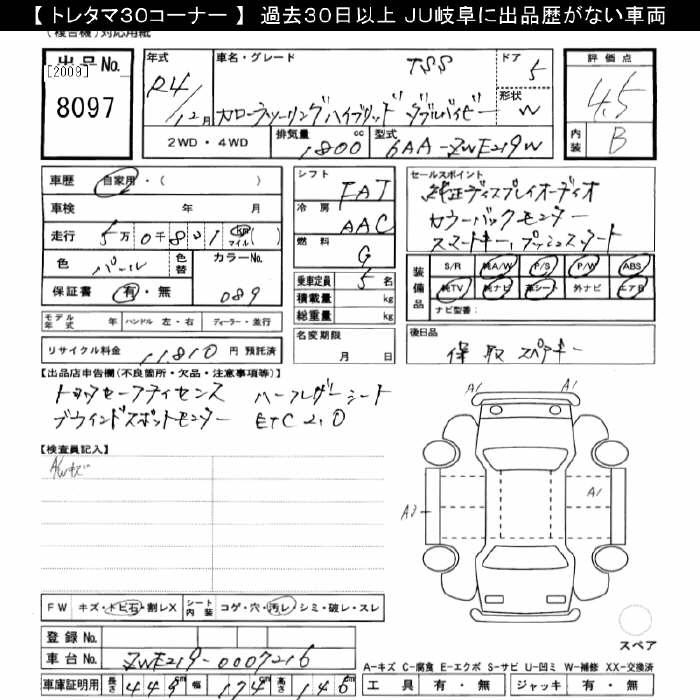 【 トレタマ30コーナー 】 過去30日以上 JU岐阜に出品歴がない車両
(複合機)対応用紙
出品No.
[2009]
8097
年式
R4/12月
車名・グレード
TSS
カローラツーリングハイブリッド ダブルバイビー
ドア
5
形状
W
2WD・4WD
排気量
1800 cc
型式
6AA-ZWE219W
評価点
4.5
内装
B
車歴
自家用・( )
車検 年 月
走行 5万0千801 km マイル ( )
色 パール
色替
カラーNo.
089
保証書 有・無
モデル年式 年
ハンドル 左・右
ディーラー・並行
リサイクル料金 11,810 円 預託済
シフト
FAT
冷房
AAC
燃料
G
乗車定員 5 名
積載量 kg
総重量 kg
名変期限
月 日
セールスポイント
純正ディスプレイオーディオ
カラーバックモニター
スマートキー、プッシュスタート
装備品
S/R 純A/W P/S P/W ABS
純TV 純ナビ 革シート 外ナビ エアB
ナビ型番:
後日品
保 取 スペアキー
【出品店申告欄(不良箇所・欠品・注意事項等)】
トヨタセーフティセンス ハーフレザーシート
ブラインドスポットモニター ETC2.0
【検査員記入】
A1
A1
A1
A2
FW キズ・トビ石・割レX
シート内装 コゲ・穴・汚レ・シミ・破レ・スレ
登録No.
車台No. ZWE219-0007216
車庫証明用 長さ 449 幅 174 高さ 146
スペア
A-キズ C-腐食 E-エクボ S-サビ U-凹ミ W-補修 XX-交換済
工具 有・無 ジャッキ 有・無